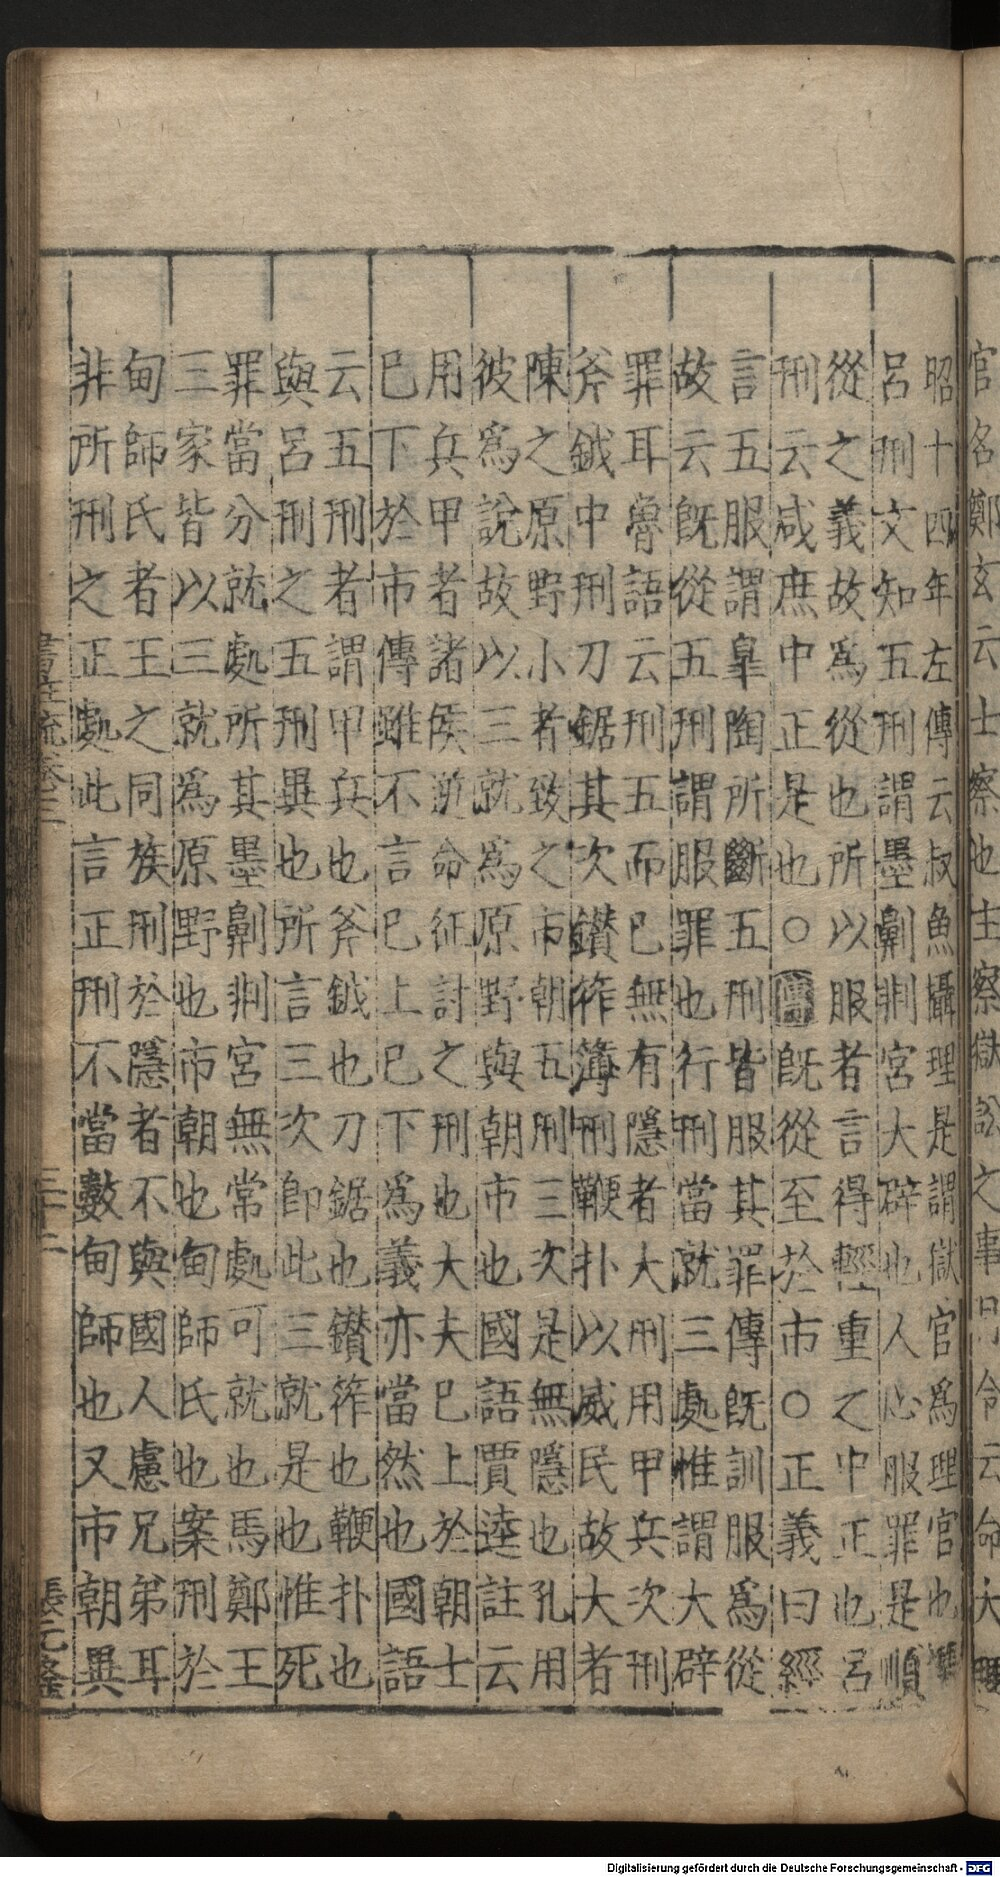 官名鄭玄云士察也主察獄訟之事月令云命大
昭十四年左傳云叔魚攝理是謂獄官爲理官也
呂刑文知五刑謂墨劓剕宮大辟也人心服罪是順
從之義故爲從也所以服者言得輕重之中正也呂
刑云咸庶中正是也○傳旣從至於市○正義曰經
言五服謂皐陶所斷五刑皆服其罪傳旣訓服爲從
故云旣從五刑謂服罪也行刑當就三處惟謂大辟
罪耳魯語云刑五而已無有隱者大刑用甲兵次刑
斧鉞中刑刀鋸其次鑚笮簿刑鞭扑以威民故大者
陳之原野小者致之市朝五刑三次是無隱也孔用
彼爲說故以三就爲原野與朝市也國語賈逵註云
用兵甲者諸侯逆命征討之刑也大夫已上於朝士
已下於市傳雖不言已上已下爲義亦當然也國語
云五刑者謂甲兵也斧鉞也刀鋸也鑚笮也鞭扑也
與呂刑之五刑異也所言三次卽此三就是也惟死
罪當分就處所其墨劓剕宮無常處可就也馬鄭王
三家皆以三就爲原野也市朝也甸師氏也案刑於
甸師氏者王之同族刑於隱者不與國人慮兄弟耳
非所刑之正處此言正刑不當數甸師也又市朝異
書註疏卷三
張元
Digitalisierung gefördert durch die Deutsche Forschungsgemeinschaft - DFG